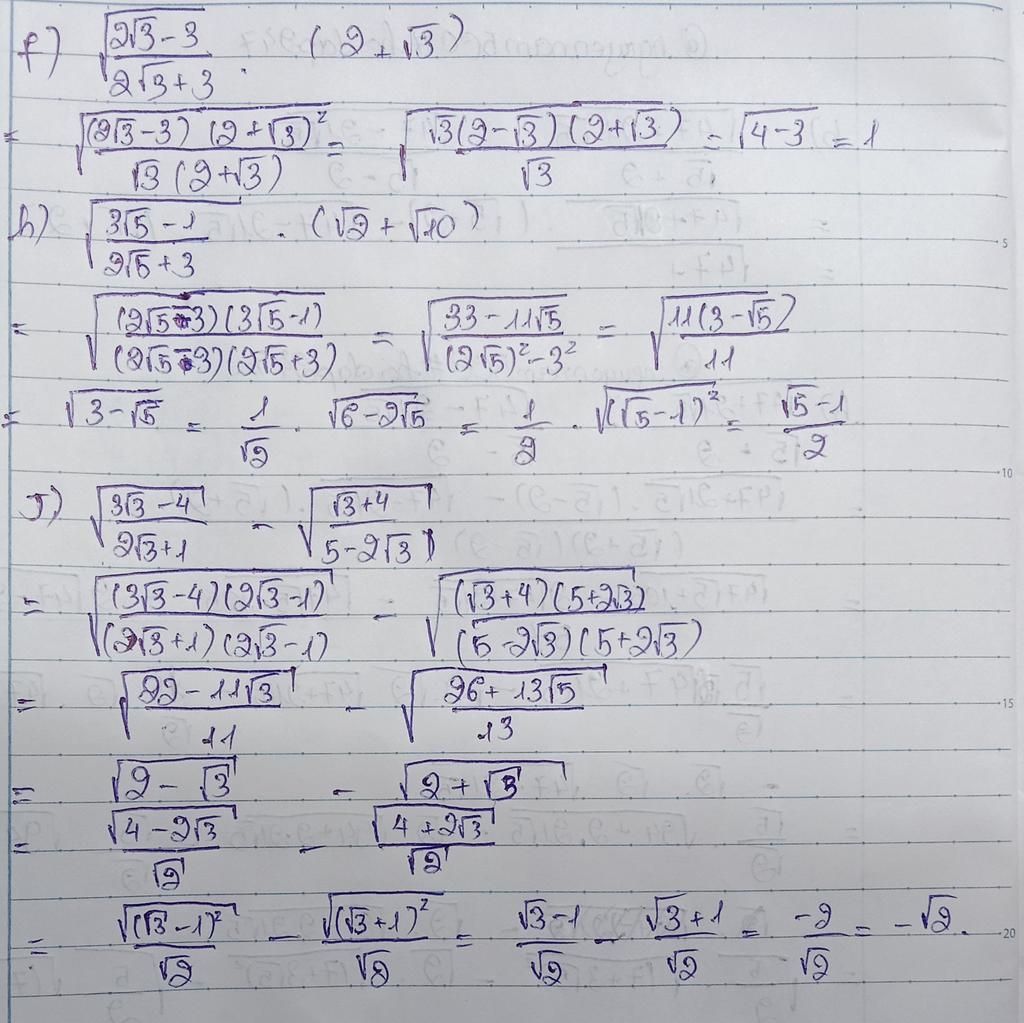 f) √((2√3 - 3)/(2√3 + 3)) . (2 + √3)
= √((2√3 - 3)(2 + √3)²/(√3(2 + √3))) = √(√3(2 - √3)(2 + √3)/√3) = √(4 - 3) = 1
h) √((3√5 - 1)/(2√5 + 3)) . (√2 + √10)
= √((2√5 - 3)(3√5 - 1)/((2√5 - 3)(2√5 + 3))) = √((33 - 11√5)/((2√5)² - 3²)) = √(11(3 - √5)/11)
= √(3 - √5) = 1/√2 . √(6 - 2√5) = 1/2 . √((√5 - 1)²) = (√5 - 1)/2
√((3√3 - 4)/(2√3 + 1)) - √((√3 + 4)/(5 - 2√3))
= √((3√3 - 4)(2√3 - 1)/((2√3 + 1)(2√3 - 1))) - √((√3 + 4)(5 + 2√3)/((5 - 2√3)(5 + 2√3)))
= √((22 - 11√3)/11) - √((26 + 13√5)/13)
= √(2 - √3) - √(2 + √3)
= √(4 - 2√3)/√2 - √(4 + 2√3)/√2
= √((√3 - 1)²)/√2 - √((√3 + 1)²)/√2 = (√3 - 1)/√2 - (√3 + 1)/√2 = -2/√2 = -√2.
5
10
15
20